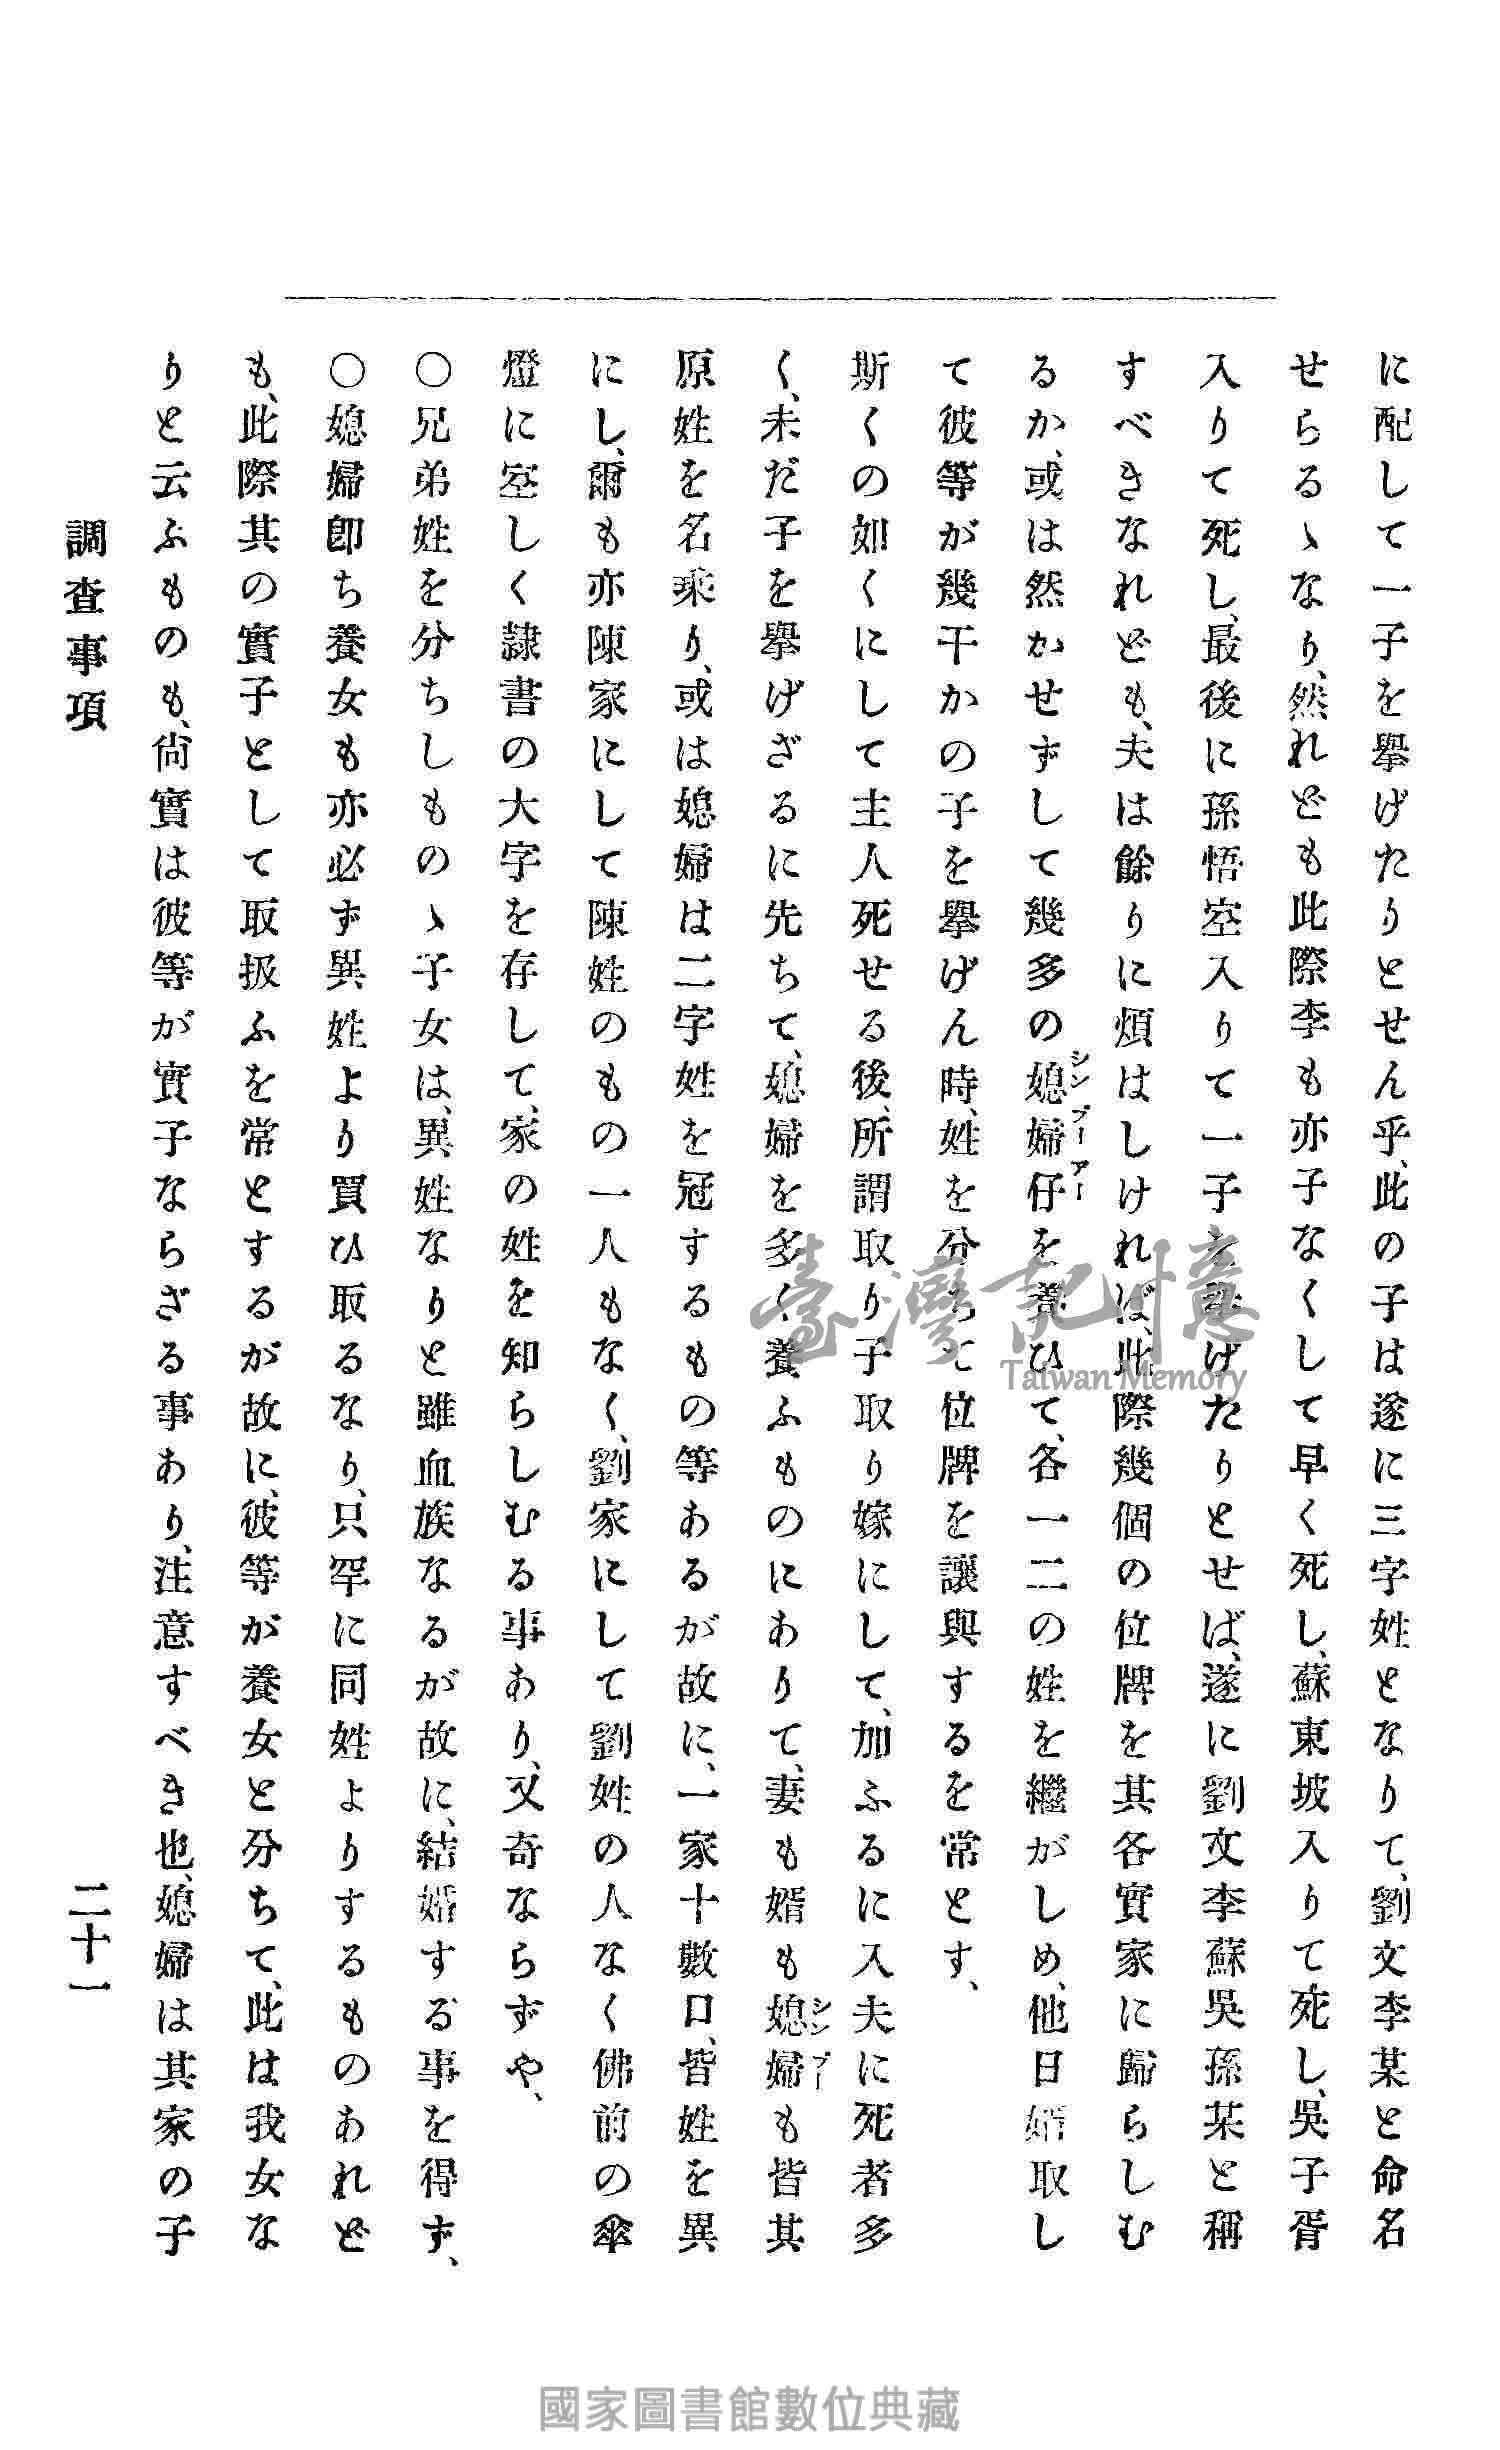 に配して一子を擧げたりとせん乎、此の子は遂に三字姓となりて、劉文李某と命名
せらるゝなり、然れども此際李も亦子なくして早く死し、蘇東坡入りて死し、吳子胥
入りて死し、最後に孫悟空入りて一子を擧げたりとせば、遂に劉文李蘇吳孫某と稱
すべきなれども、夫は餘りに煩はしければ、此際幾個の位牌を其各實家に歸らしむ
るか、或は然かせずして幾多の媳婦仔を養ひて、各一二の姓を繼がしめ、他日婿取し
シンプーアー
て彼等が幾干かの子を擧げん時、姓を分ちて位牌を讓與するを常とす、
斯くの如くにして主人死せる後、所謂取り子取り嫁にして、加ふるに入夫に死者多
く、未だ子を擧げざるに先ちて、媳婦を多く養ふものにありて、妻も婿も媳婦も皆其
シンプー
原姓を名乘り、或は媳婦は二字姓を冠するもの等あるが故に、一家十數口、皆姓を異
にし、爾も亦陳家にして陳姓のもの一人もなく、劉家にして劉姓の人なく佛前の傘
燈に空しく隷書の大字を存して、家の姓を知らしむる事あり、又奇ならずや、
〇兄弟姓を分ちしものゝ子女は、異姓なりと雖血族なるが故に、結婚する事を得ず、
〇媳婦卽ち養女も亦必ず異姓より買ひ取るなり、只罕に同姓よりするものあれど
も、此際其の實子として取扱ふを常とするが故に、彼等が養女と分ちて、此は我女な
りと云ふものも、尙實は彼等が實子ならざる事あり、注意すべき也、媳婦は其家の子
調查事項
二十一
臺灣記憶
Taiwan Memory
國家圖書館數位典藏